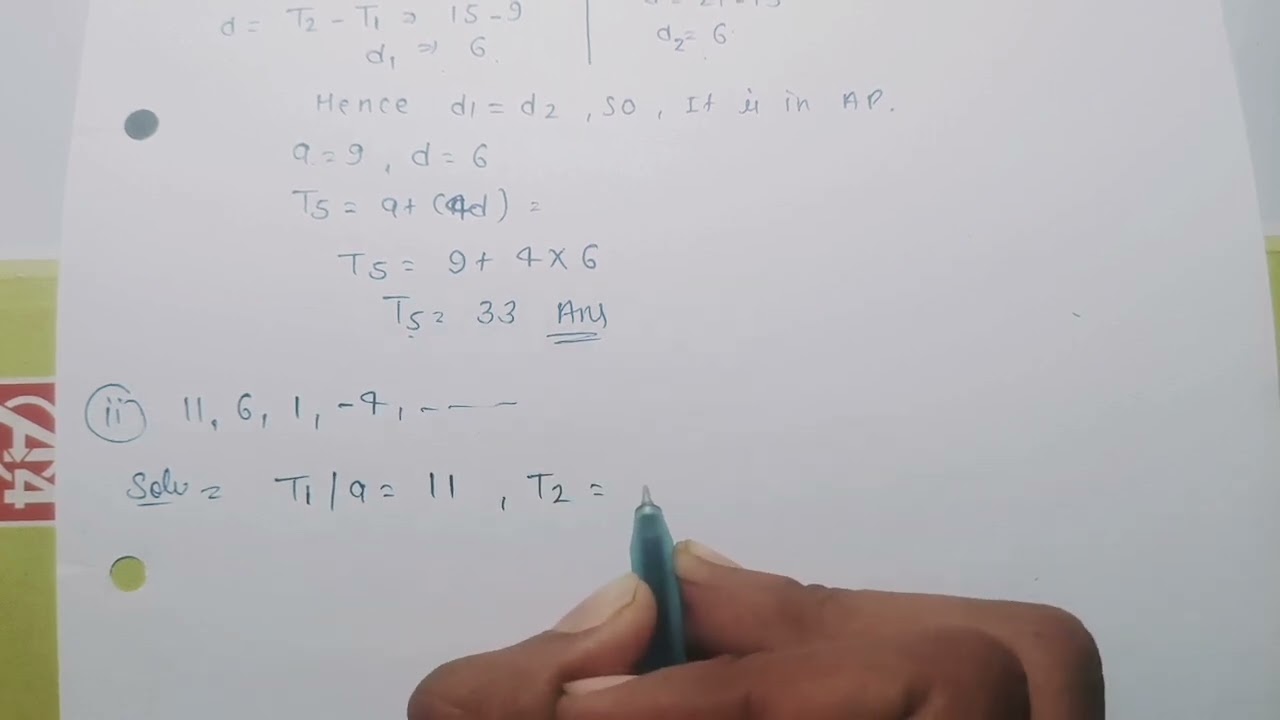 d = T2 - T1 ⇒ 15 - 9
d1 ⇒ 6
d2 = 6
Hence d1 = d2 , SO , It is in AP.
a = 9 , d = 6
T5 = a + (4d) =
T5 = 9 + 4 × 6
T5 = 33 Ans
ii 11, 6, 1, -4, - ——
Solu = T1 / a = 11 , T2 =
A4